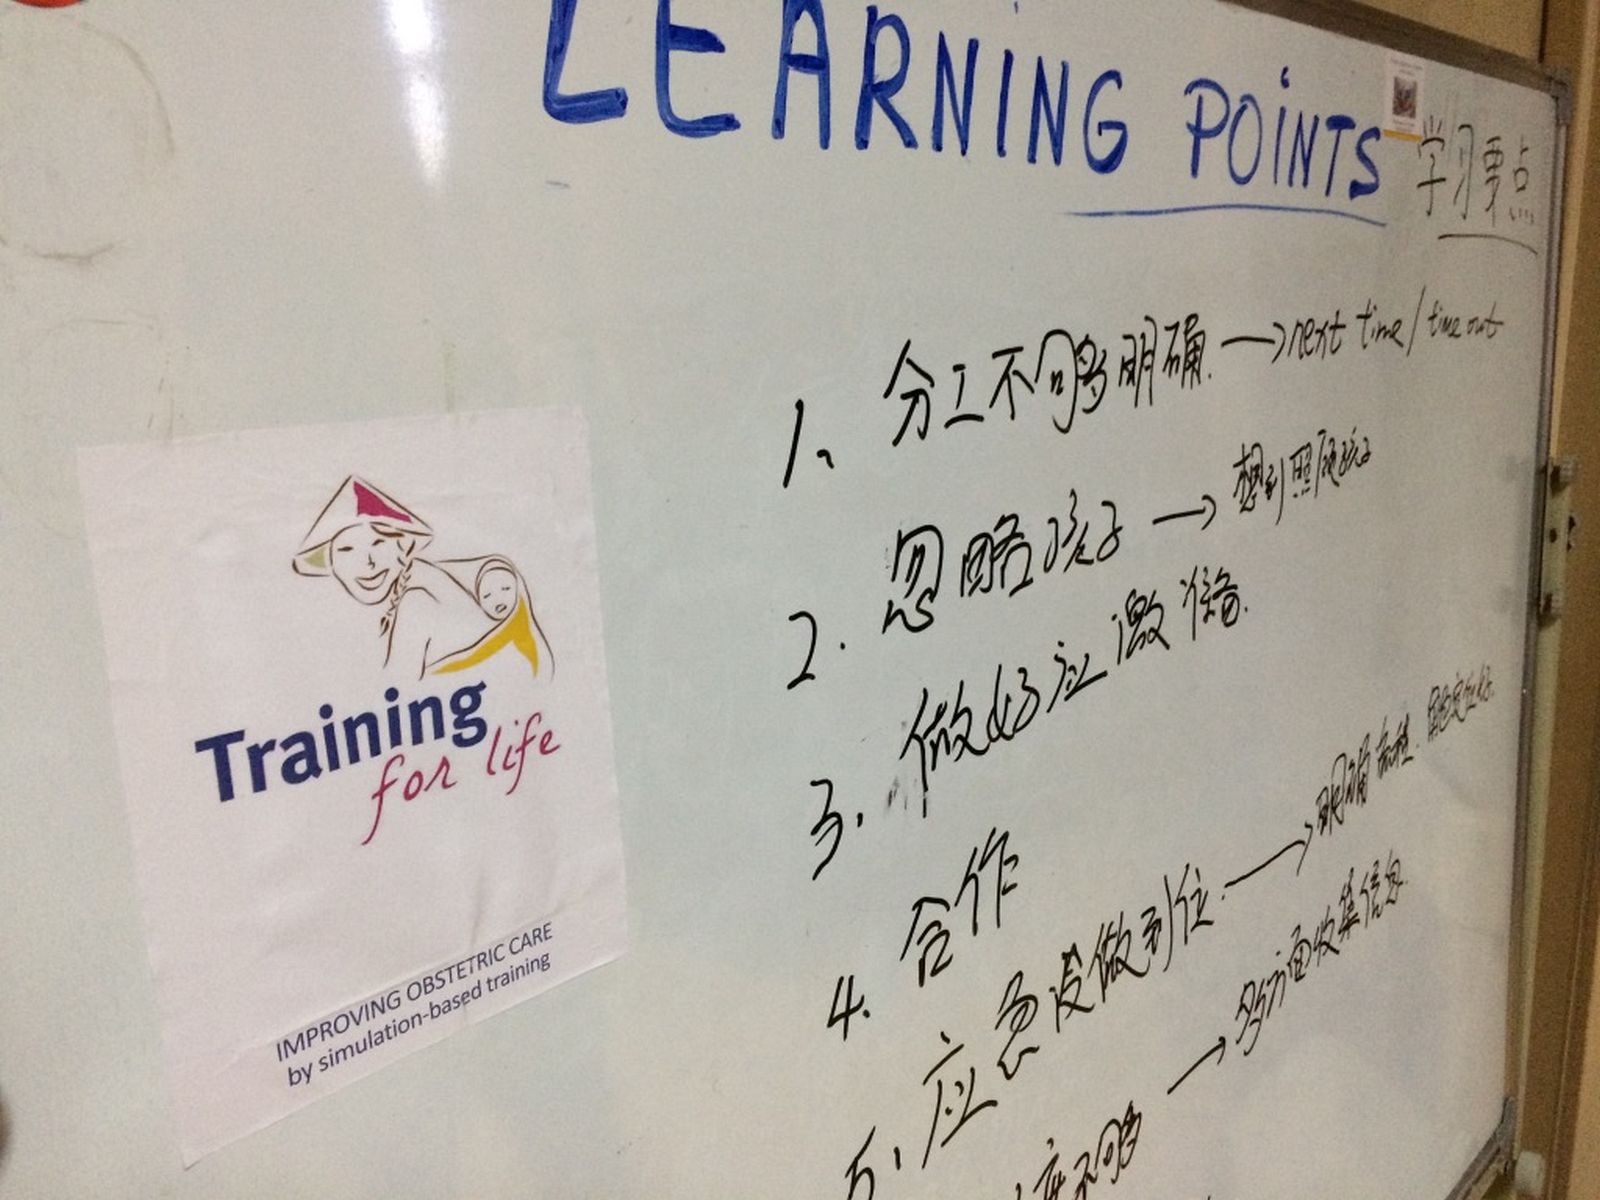 LEARNING POINTS 学习要点
1、分工不够明确. → next time / time out
2. 忽略孩子 → 想到照顾孩子
3. 做好应激准备.
4. 合作
5、应急没做到位. → 明确流程.
不够 → 多方面收集信息.
Training
for life
IMPROVING OBSTETRIC CARE
by simulation-based training